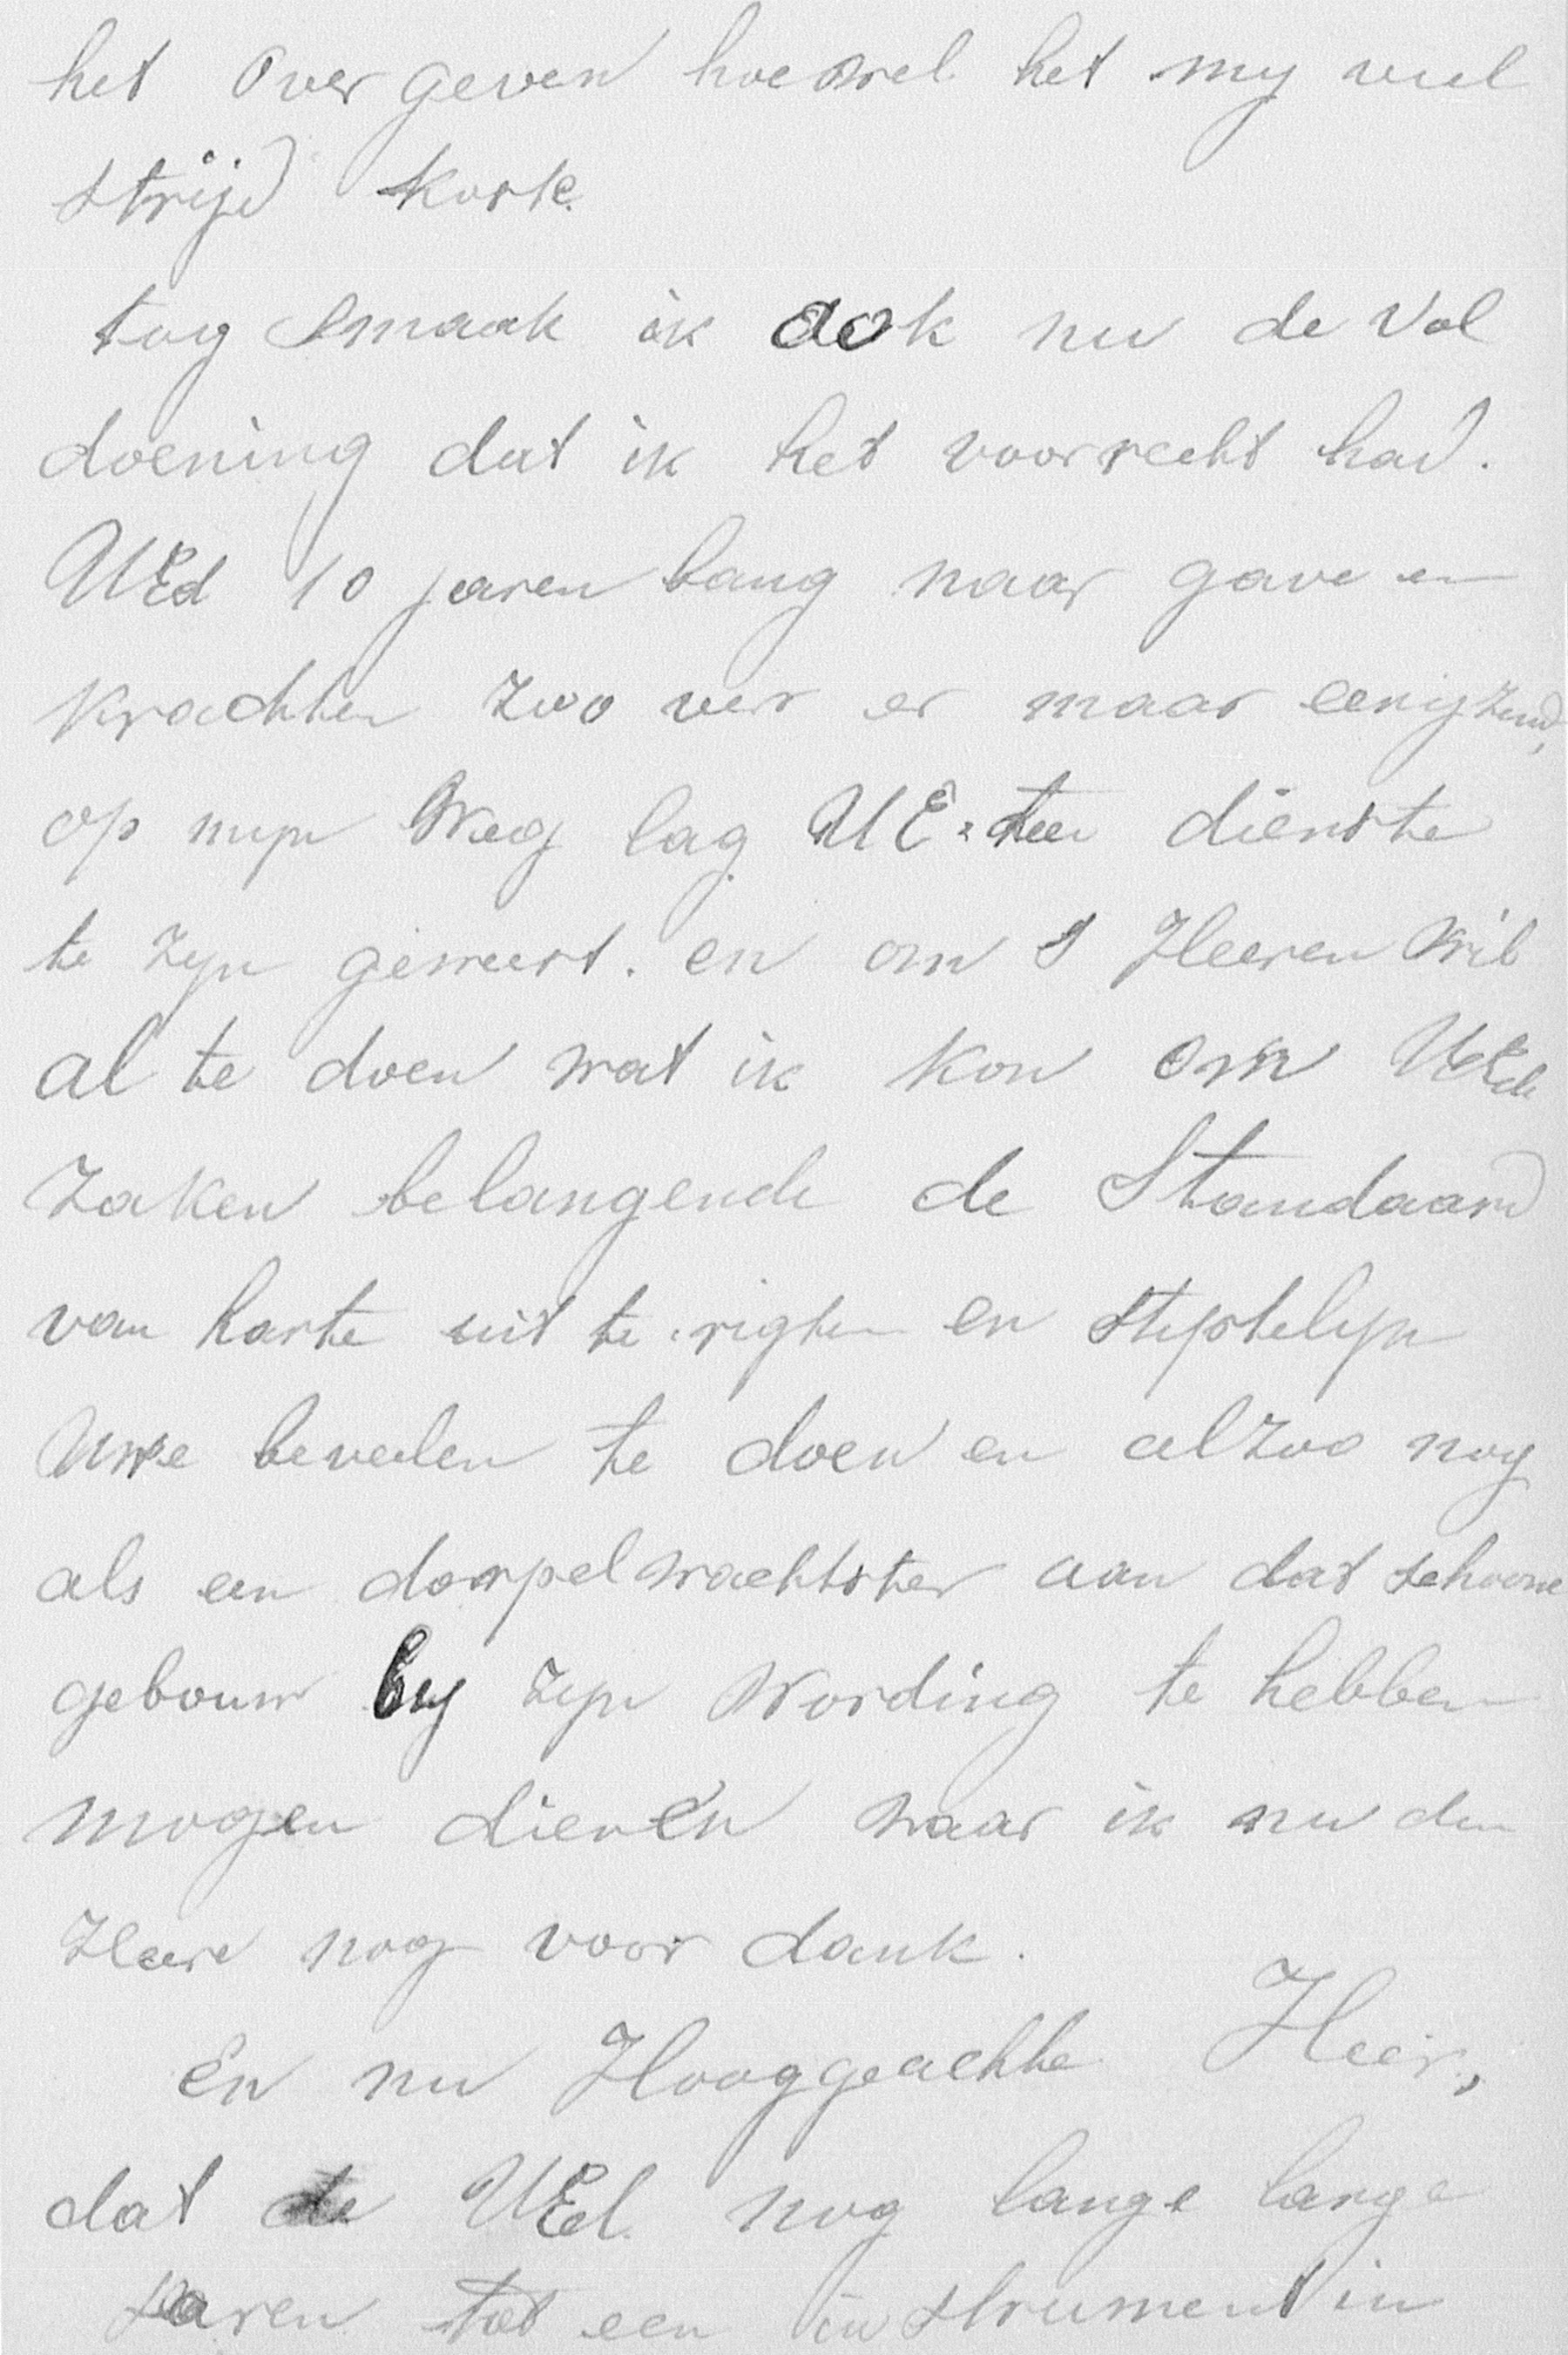 het over geven hoewel het my veel
strijd koste
tog smaak ik ook nu de vol
doening dat ik het voorrecht had.
UEd 10 jaren lang naar gave en
krachten zoo ver er maar eenigzind,
op myn Weg lag UE ten dienste
te zyn geweest. en om s Heeren wil
al te doen wat ik kon om UEd
zaken belangende de Standaard
van harte uit te rigten en stiptelyk
Uwe bevelen te doen en alzoo nog
als een dorpelwachtster aan dat schoone
gebouw by zyn Wording te hebben
mogen dienen waar ik nu den
Heere nog voor dank.
En nu Hooggeachte Heer,
dat UEd. nog lange lange
Jaren tot een instrument in